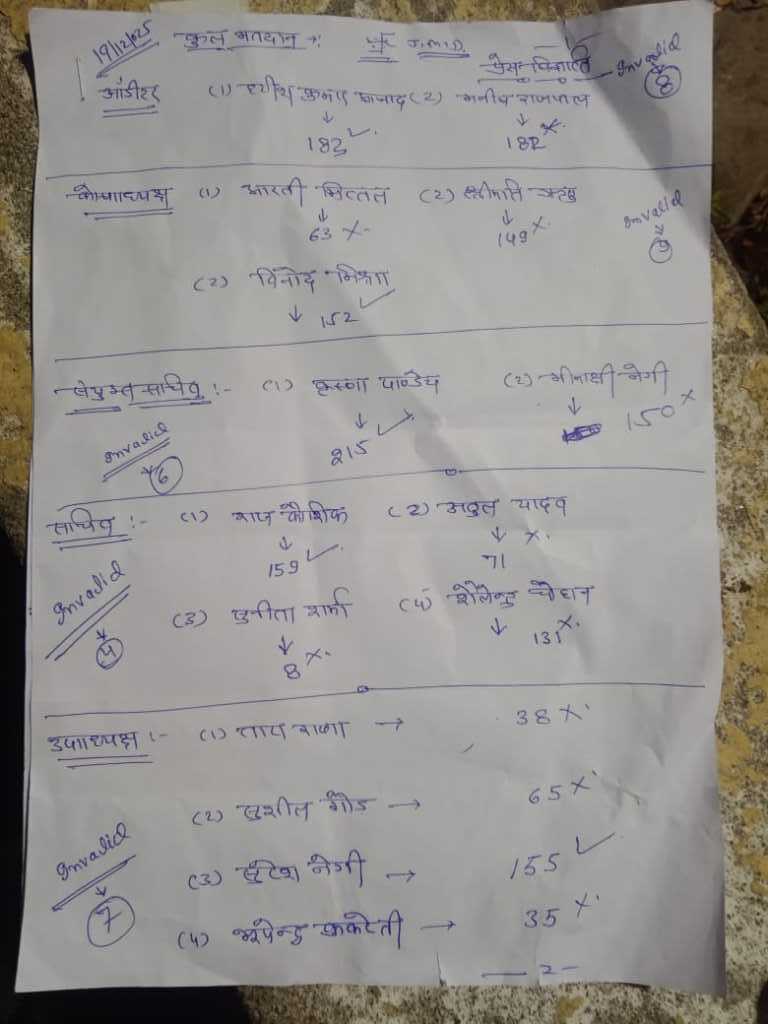 19/12/025 कुल मतदान :- J.M.D.
प्रेस विज्ञप्ति Invalid 8
ऑडीटर (1) कुमार (2) मनीष
182 ✓ 182 ×
कोषाध्यक्ष (1) आरती मित्तल (2) श्रीमति Invalid 9
63 × 149 ×
(2) विनोद मिश्रा
152 ✓
संयुक्त सचिव :- (1) कृष्णा पाण्डेय (2) मीनाक्षी नेगी
215 ✓ 150 ×
Invalid 6
सचिव :- (1) राज कौशिक (2) अतुल यादव
159 ✓ 71 ×
Invalid 4
(3) सुनीता शर्मा (4) शैलेन्द्र चौहान
8 × 131 ×
उपाध्यक्ष :- (1) तारा राणा → 38 ×
(2) सुशील गौड → 65 ×
Invalid 7
(3) सुरेश नेगी → 155 ✓
(4) भूपेन्द्र → 35 ×
— 2 -